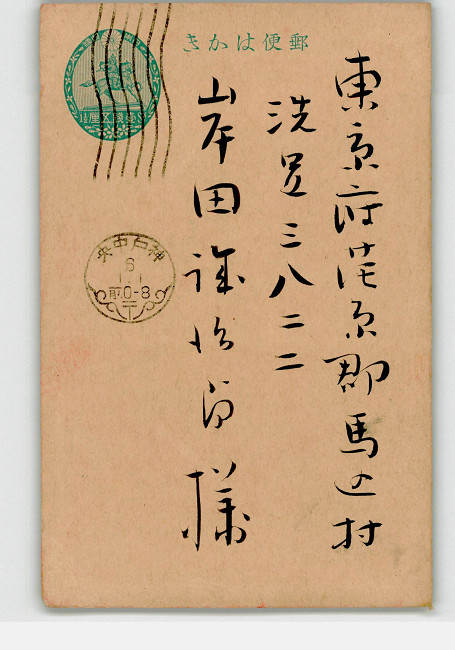 郵便はかき
壹錢五厘
東京府荏原郡馬込村
洗足三八二二
岸田 様
神戸中央
6
1.1
前0-8